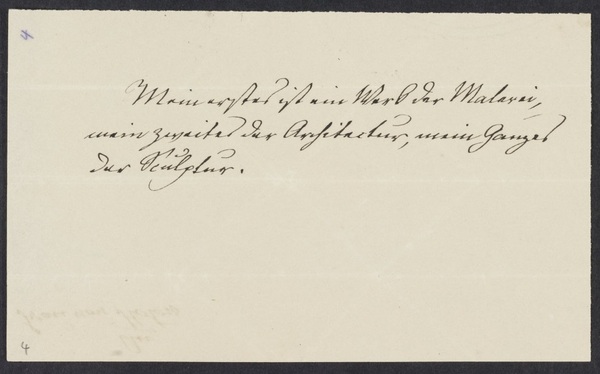 4
Mein erstes ist ein Werk der Malerei,
mein zweites der Architectur, mein Ganzes
der Sculptur.
4